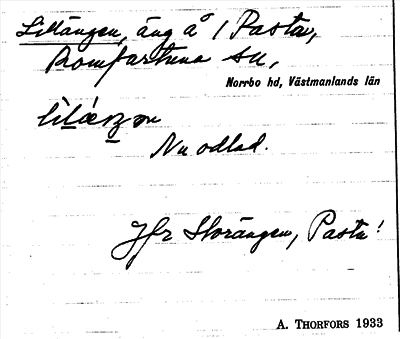 Lillängen, äng å 1 Pasta,
Romfartuna sn,
Norrbo hd, Västmanlands län
Nu odlad.
Jfr Storängen, Pasta!
A. THORFORS 1933